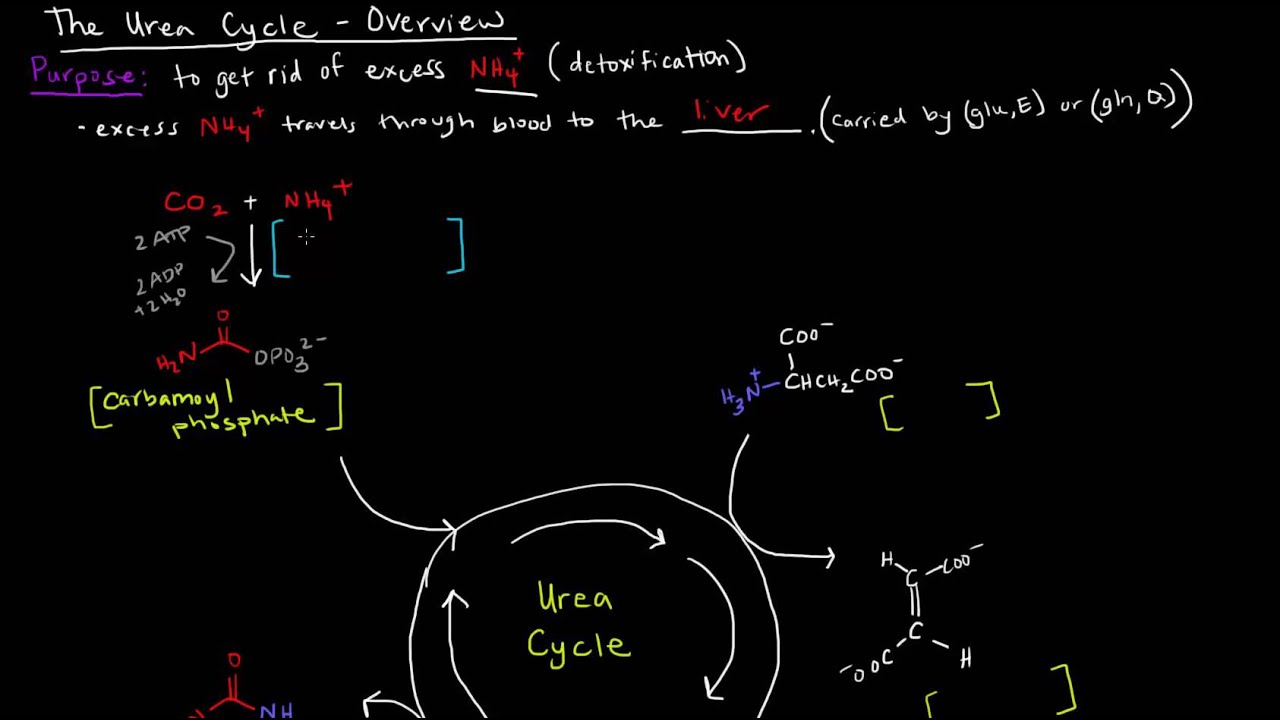 The Urea Cycle - Overview
Purpose: to get rid of excess NH4+ (detoxification)
- excess NH4+ travels through blood to the liver. (carried by (glu, E) or (gln, Q))
CO2 + NH4+
2 ATP
2 ADP
+ 2 H2O
[ ]
O
H2N
OPO3 2-
[carbamoyl
phosphate]
COO-
H3N+ - CHCH2COO-
[ ]
Urea
Cycle
H
C
COO-
C
-OOC
H
[ ]
O
NH